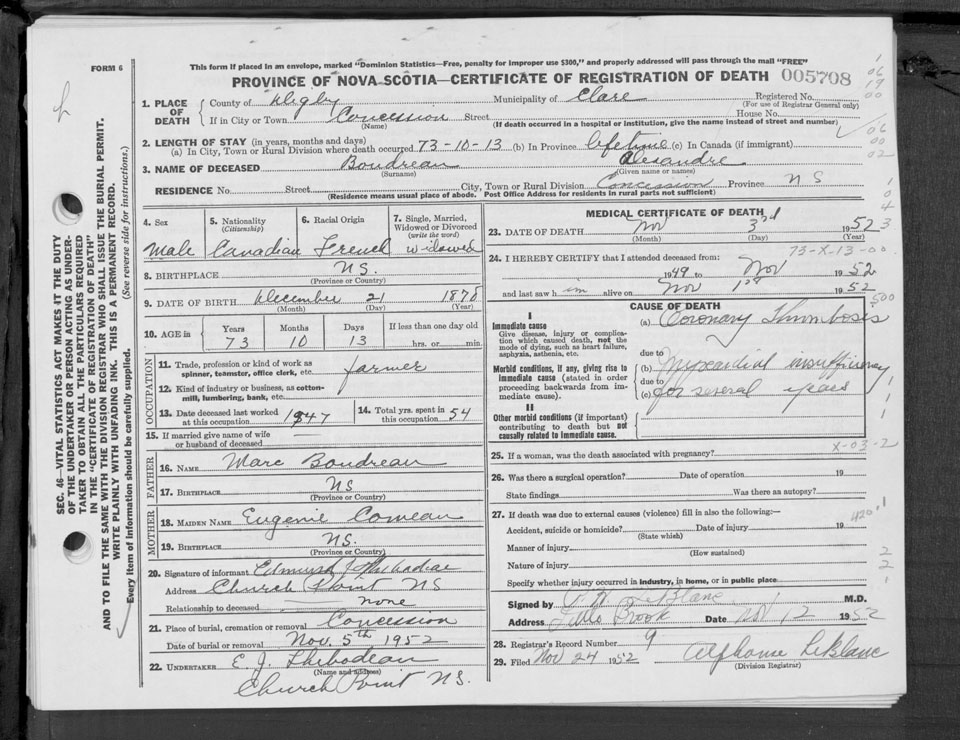 This form if placed in an envelope, marked "Dominion Statistics—Free, penalty for improper use $300," and properly addressed will pass through the mail "FREE"
FORM 6
PROVINCE OF NOVA SCOTIA—CERTIFICATE OF REGISTRATION OF DEATH 005708
1. PLACE OF DEATH { County of Digby Municipality of Clare Registered No. (For use of Registrar General only)
If in City or Town Concession Street House No.
(Name) (If death occurred in a hospital or institution, give the name instead of street and number)
2. LENGTH OF STAY (in years, months and days)
(a) In City, Town or Rural Division where death occurred 73-10-13 (b) In Province lifetime (c) In Canada (if immigrant)
3. NAME OF DECEASED Boudreau Alexandre
(Surname) (Given name or names)
RESIDENCE No. Street City, Town or Rural Division Concession Province N S
(Residence means usual place of abode. Post Office Address for residents in rural parts not sufficient)
SEC. 46—VITAL STATISTICS ACT MAKES IT THE DUTY
OF THE UNDERTAKER OR PERSON ACTING AS UNDER-
TAKER TO OBTAIN ALL THE PARTICULARS REQUIRED
IN THE "CERTIFICATE OF REGISTRATION OF DEATH"
AND TO FILE THE SAME WITH THE DIVISION REGISTRAR WHO SHALL ISSUE THE BURIAL PERMIT.
WRITE PLAINLY WITH UNFADING INK. THIS IS A PERMANENT RECORD.
Every item of information should be carefully supplied. (See reverse side for instructions.)
4. Sex 5. Nationality (Citizenship) 6. Racial Origin 7. Single, Married, Widowed or Divorced (write the word)
Male Canadian French widowed
8. BIRTHPLACE N S.
(Province or Country)
9. DATE OF BIRTH December 21 1878
(Month) (Day) (Year)
10. AGE in Years Months Days If less than one day old
73 10 13 hrs. or min.
OCCUPATION
11. Trade, profession or kind of work as
spinner, teamster, office clerk, etc. farmer
12. Kind of industry or business, as cotton-
mill, lumbering, bank, etc.
13. Date deceased last worked at this occupation 1947 14. Total yrs. spent in this occupation 54
15. If married give name of wife
or husband of deceased
FATHER
16. NAME Marc Boudreau
17. BIRTHPLACE NS
(Province or Country)
MOTHER
18. MAIDEN NAME Eugenie Comeau
19. BIRTHPLACE NS.
(Province or Country)
20. Signature of informant Edmund J
Address Church Point NS
Relationship to deceased none
21. Place of burial, cremation or removal Concession
Date of burial or removal Nov. 5th 1952
22. UNDERTAKER E. J. Thibodeau
(Name and address)
Church Point N.S.
MEDICAL CERTIFICATE OF DEATH
23. DATE OF DEATH Nov 3rd 1952
(Month) (Day) (Year)
73-X-13-00
24. I HEREBY CERTIFY that I attended deceased from:
1949 to Nov 1952
and last saw h im alive on Nov 1st 1952
I
Immediate cause
Give disease, injury or complication which caused death, not the mode of dying, such as heart failure, asphyxia, asthenia, etc.
Morbid conditions, if any, giving rise to immediate cause (stated in order proceeding backwards from immediate cause).
II
Other morbid conditions (if important) contributing to death but not causally related to immediate cause.
CAUSE OF DEATH
(a) Coronary Thrombosis
due to
(b) Myocardial insufficiency
due to
(c) for several years
X-03-2
25. If a woman, was the death associated with pregnancy?
26. Was there a surgical operation? Date of operation 19
State findings Was there an autopsy?
27. If death was due to external causes (violence) fill in also the following:—
Accident, suicide or homicide? Date of injury 19
(State which)
420
Manner of injury
(How sustained)
Nature of injury
Specify whether injury occurred in industry, in home, or in public place
Signed by LeBlanc M.D.
Address Little Brook Date Nov 12 1952
28. Registrar's Record Number 9
29. Filed Nov 24 1952 Alphonse LeBlanc
(Division Registrar)